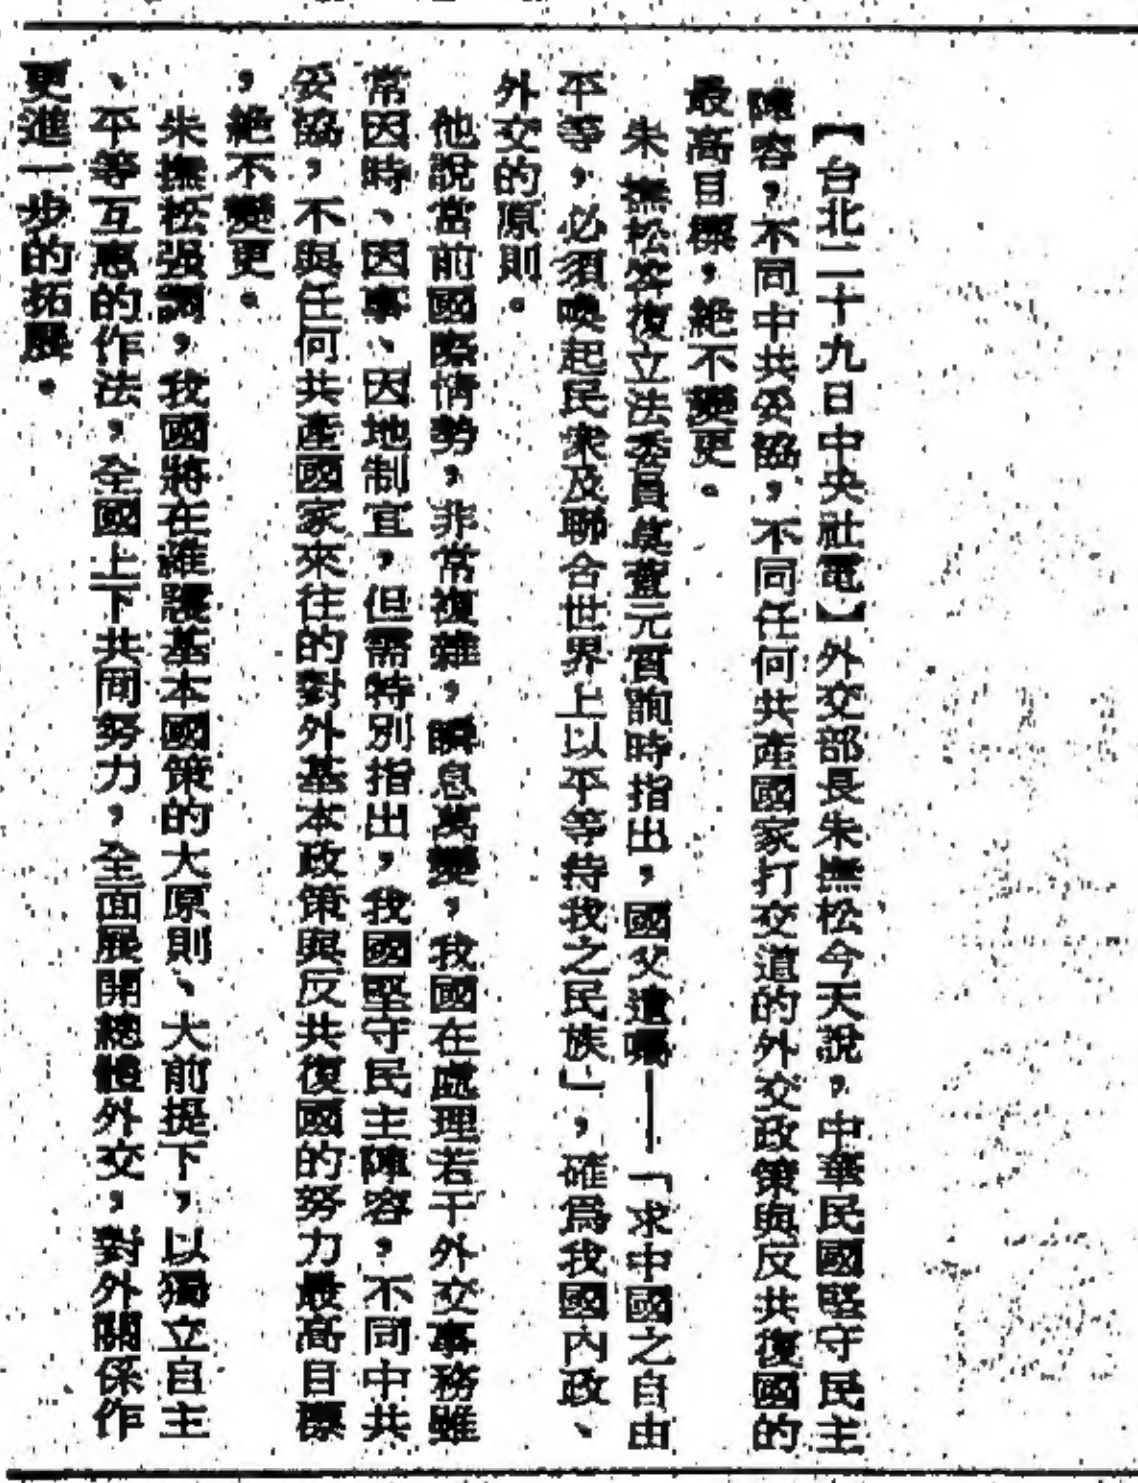 【台北二十九日中央社電】外交部長朱撫松今天說，中華民國堅守民主
陣容，不同中共妥協，不同任何共產國家打交道的外交政策與反共復國的
最高目標，絕不變更。
朱撫松答復立法委員莫萱元質詢時指出，國父遺囑——「求中國之自由
平等，必須喚起民衆及聯合世界上以平等待我之民族」，確爲我國內政、
外交的原則。
他說當前國際情勢，非常複雜，瞬息萬變，我國在處理若干外交事務雖
常因時、因事、因地制宜，但需特別指出，我國堅守民主陣容，不同中共
妥協，不與任何共產國家來往的對外基本政策與反共復國的努力最高目標
，絕不變更。
朱撫松强調，我國將在維護基本國策的大原則、大前提下，以獨立自主
、平等互惠的作法，全國上下共同努力，全面展開總體外交，對外關係作
更進一步的拓展。